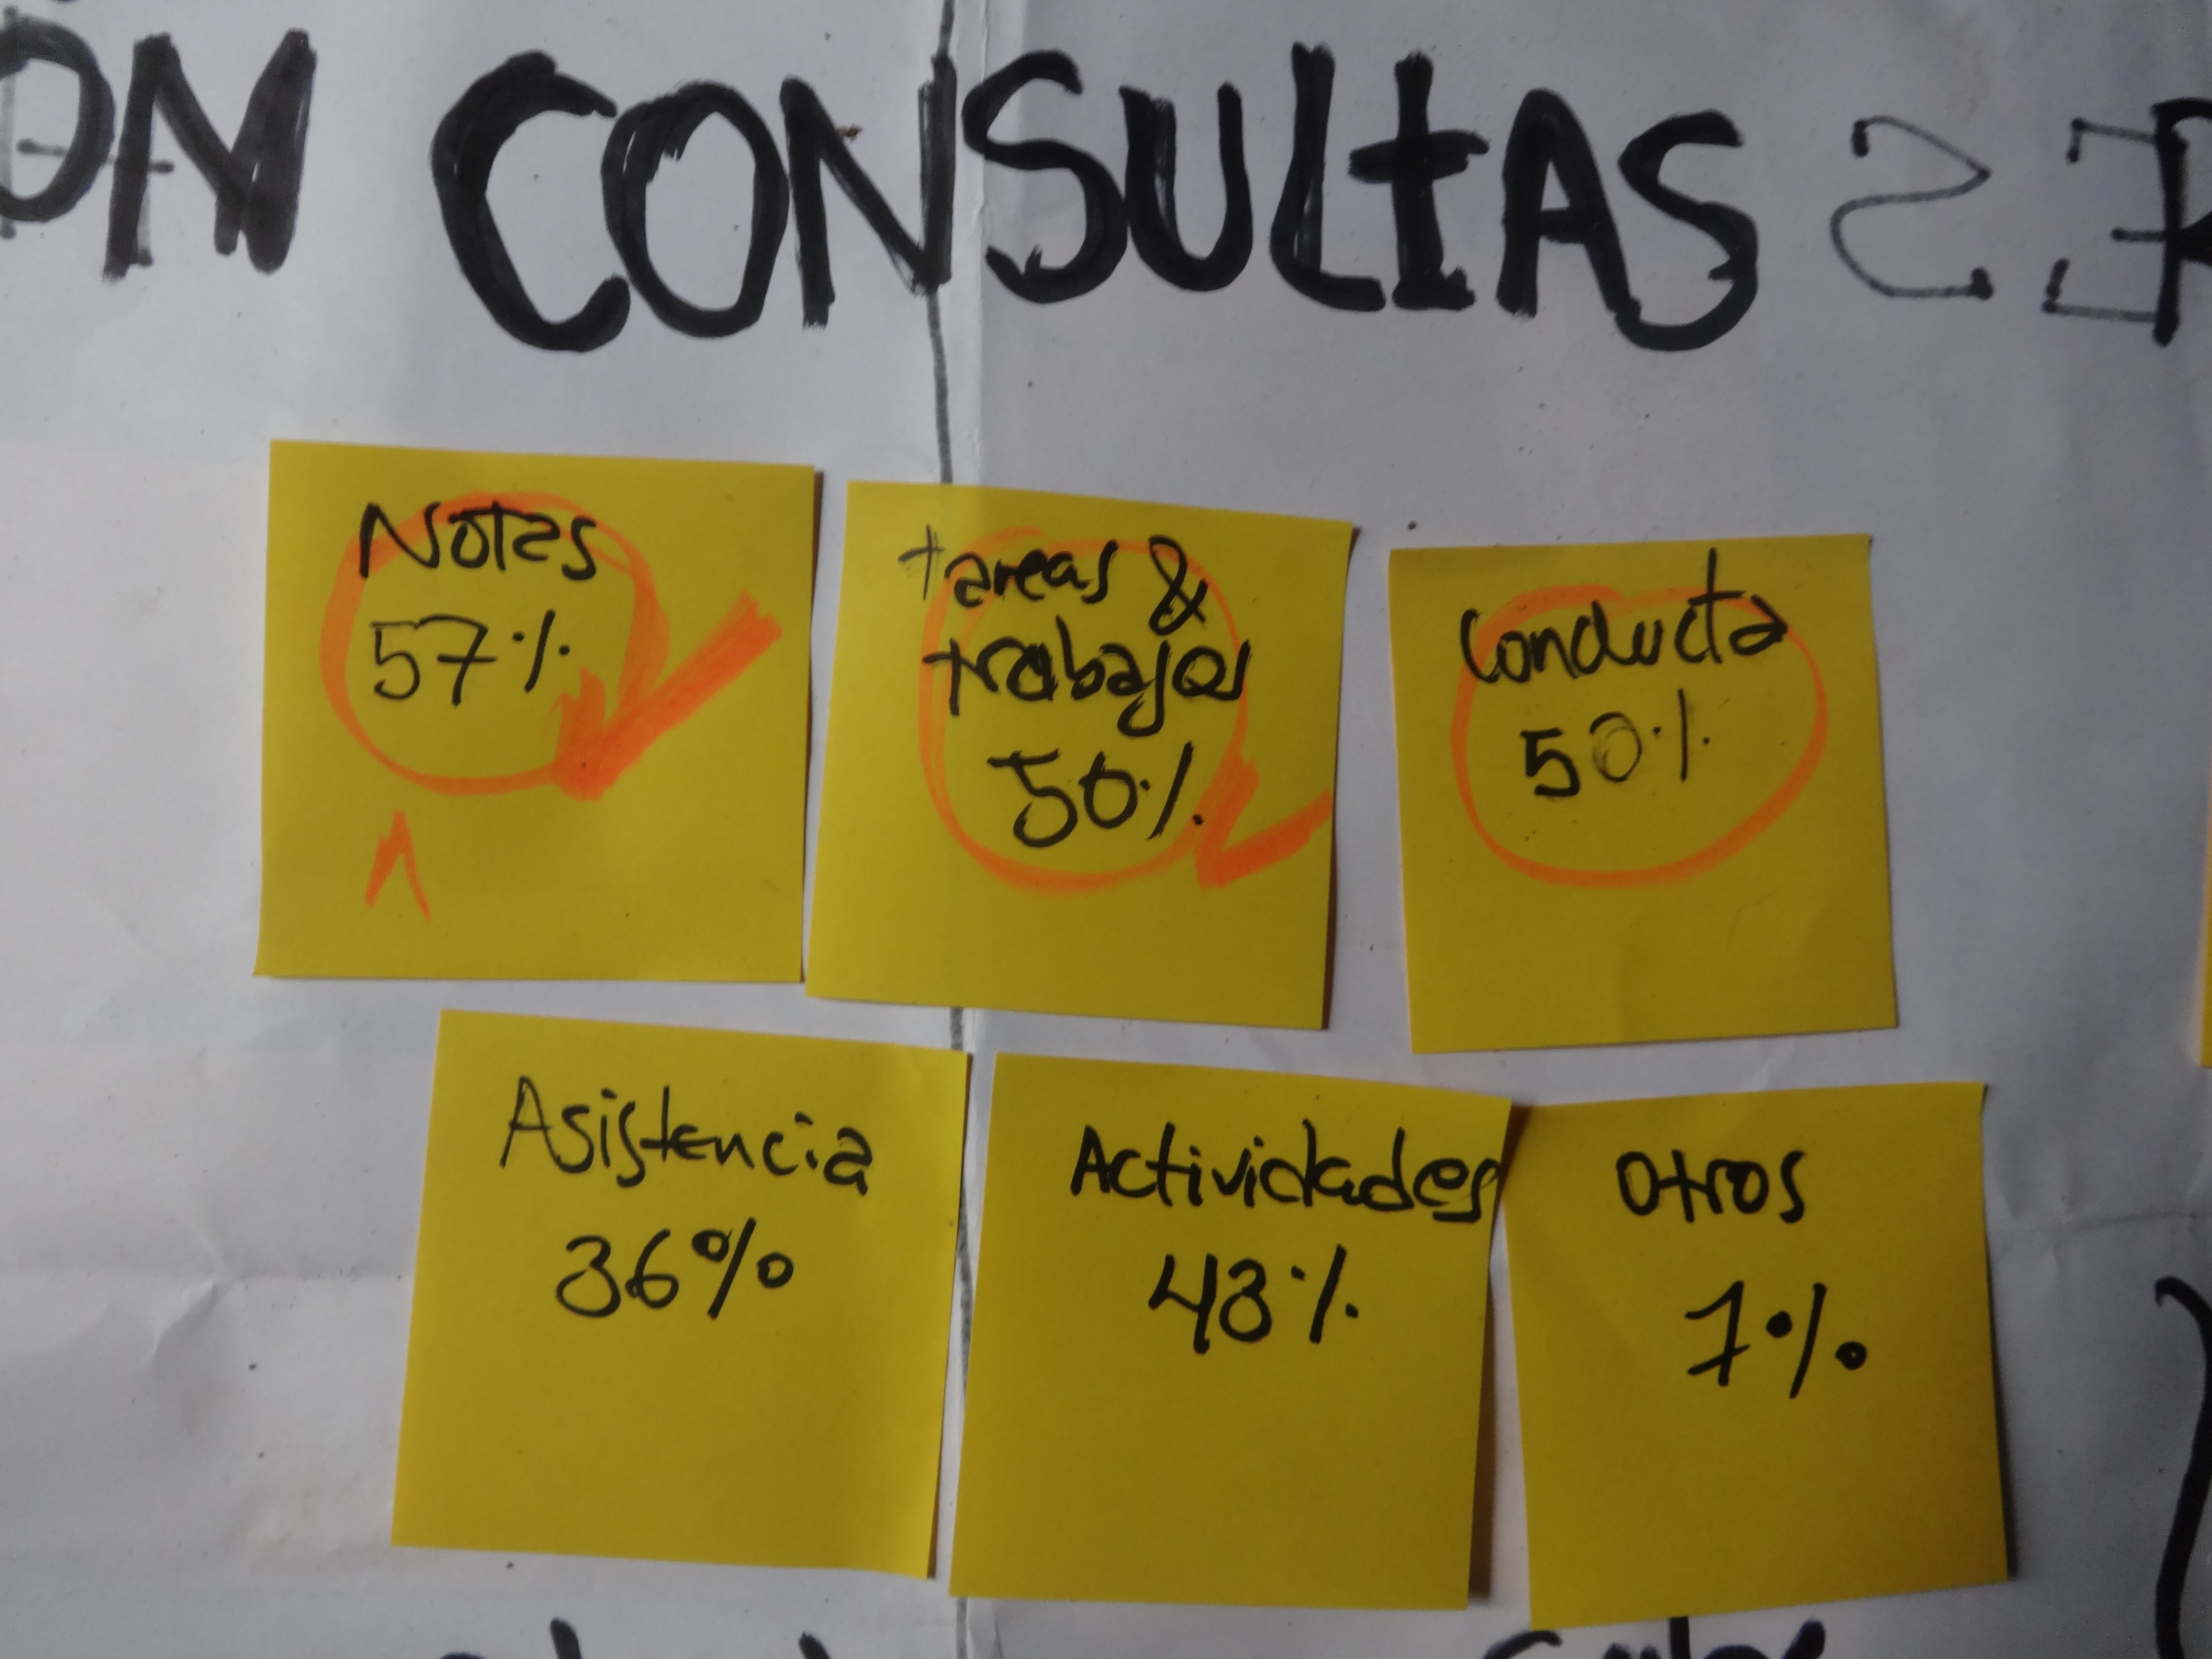 ON CONSULTAS
Notas
57%
tareas &
trabajos
50%
Conducta
50%
Asistencia
36%
Actividades
43%
Otros
7%